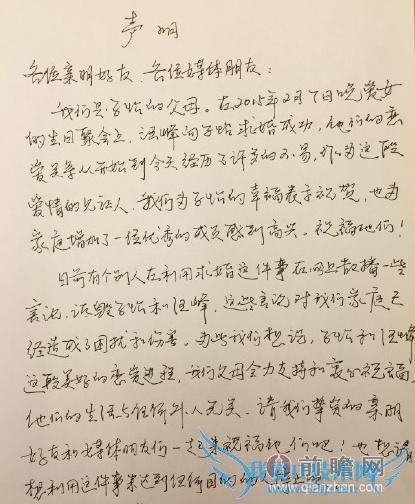 声明
各位亲朋好友 各位媒体朋友：
我们是子怡的父母。在2015年2月7日晚爱女
的生日聚会上，汪峰向子怡求婚成功，他们的恋
爱关系从开始到今天经历了许多的不易，作为这段
爱情的见证人，我们为子怡的幸福表示祝贺，也为
家庭增加了一位优秀的成员感到高兴。祝福他们！
日前有个别人在利用求婚这件事在网上散播一些
言论，诋毁子怡和汪峰，这些言论对我们家庭已
经造成了困扰和伤害。为此我们想说，子怡和汪峰
这段美好的恋爱进程，我们父母全力支持和衷心祝福，
他们的生活与任何外人无关，请我们挚爱的亲朋
好友和媒体朋友们一起来祝福他们吧！也想请
想利用这件事来达到任何目的的人
前瞻网
www.qianzhan.com